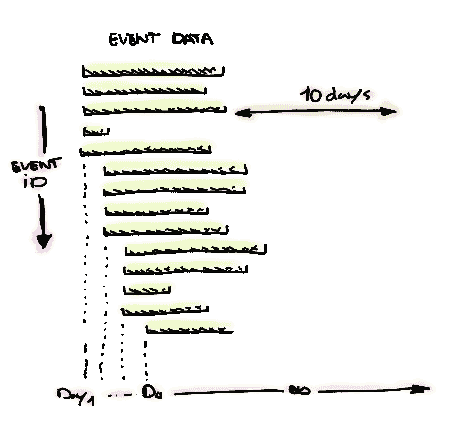 EVENT DATA
10 days
EVENT
iD
Day1 ---- D4
∞